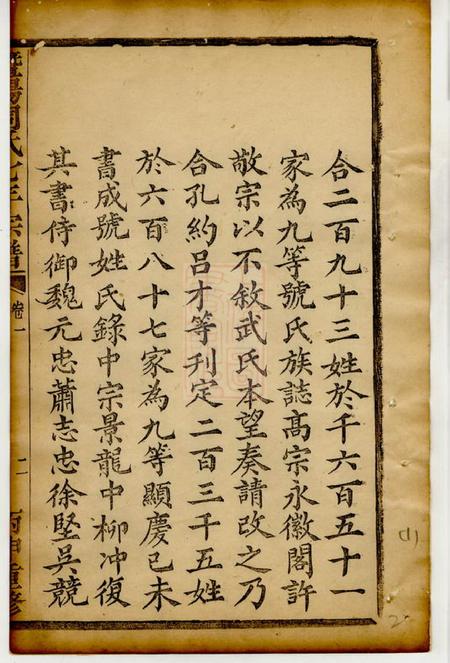 合二百九十三姓於千六百五十一
家為九等號氏族誌高宗永徽閣許
敬宗以不敘武氏本望奏請改之乃
合孔約呂才等刊定二百三千五姓
於六百八十七家為九等顯慶已未
書成號姓氏錄中宗景龍中柳冲復
其書侍御魏元忠蕭志忠徐堅吳競
宗譜
卷一
重修